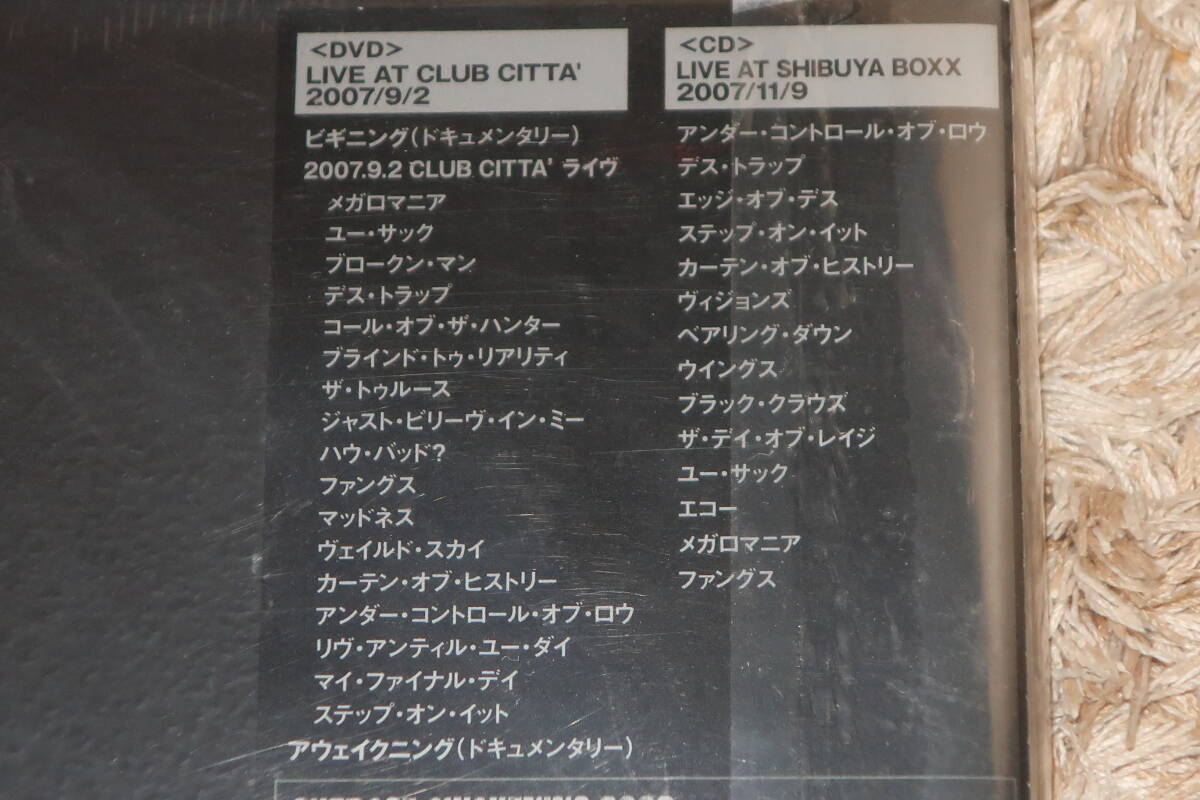 <DVD>
LIVE AT CLUB CITTA'
2007/9/2
ビギニング(ドキュメンタリー)
2007.9.2 CLUB CITTA' ライヴ
メガロマニア
ユー・サック
ブロークン・マン
デス・トラップ
コール・オブ・ザ・ハンター
ブラインド・トゥ・リアリティ
ザ・トゥルース
ジャスト・ビリーヴ・イン・ミー
ハウ・バッド?
ファングス
マッドネス
ヴェイルド・スカイ
カーテン・オブ・ヒストリー
アンダー・コントロール・オブ・ロウ
リヴ・アンティル・ユー・ダイ
マイ・ファイナル・デイ
ステップ・オン・イット
アウェイクニング(ドキュメンタリー)
<CD>
LIVE AT SHIBUYA BOXX
2007/11/9
アンダー・コントロール・オブ・ロウ
デス・トラップ
エッジ・オブ・デス
ステップ・オン・イット
カーテン・オブ・ヒストリー
ヴィジョンズ
ベアリング・ダウン
ウイングス
ブラック・クラウズ
ザ・デイ・オブ・レイジ
ユー・サック
エコー
メガロマニア
ファングス